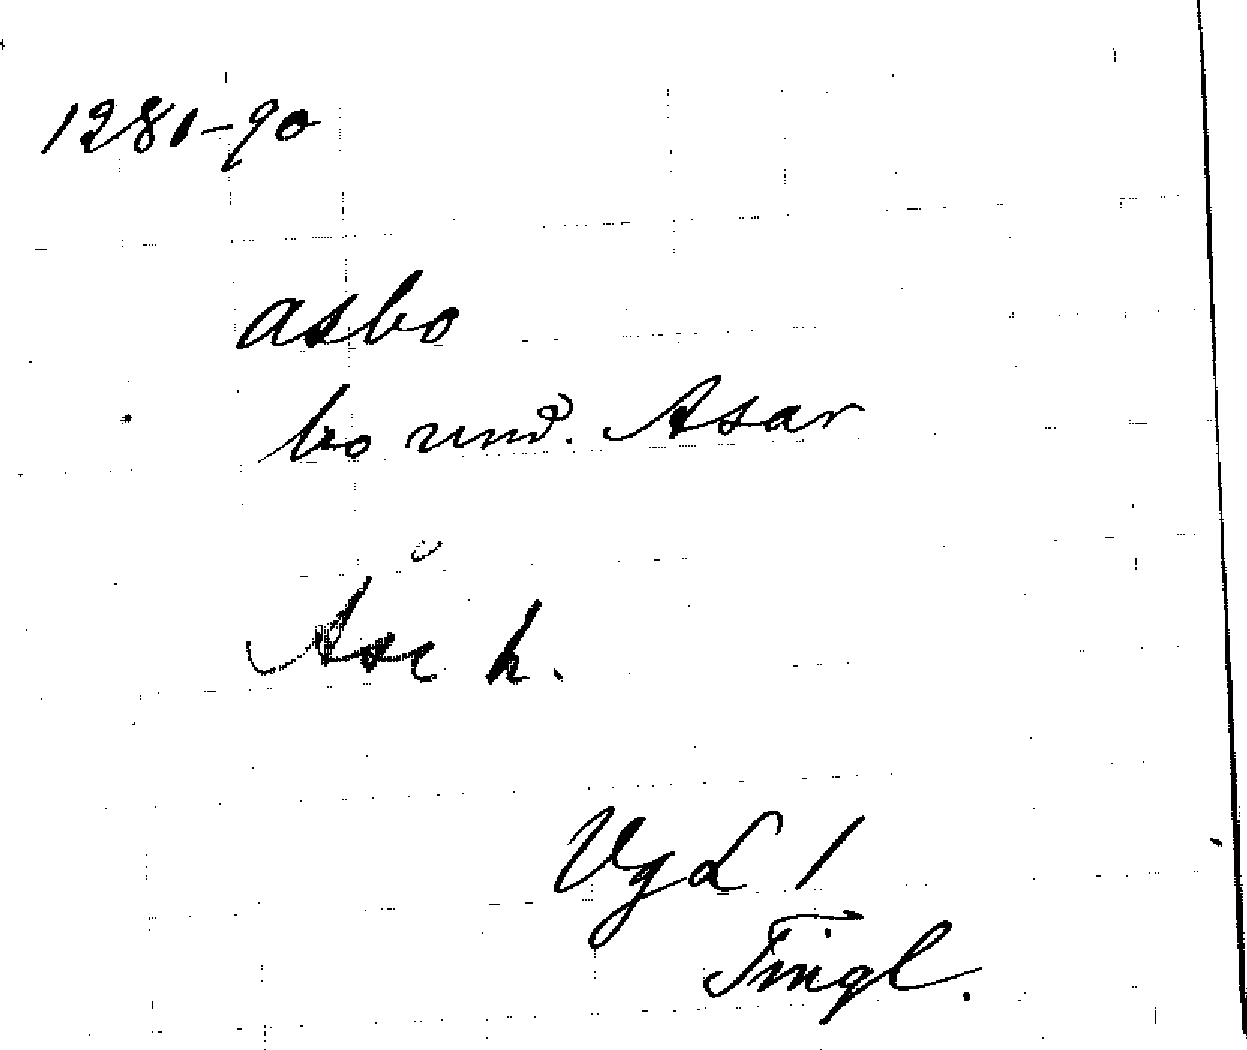 1281-90
asbo
bo und. Asar
Åse h.
VgL 1
Tingl.